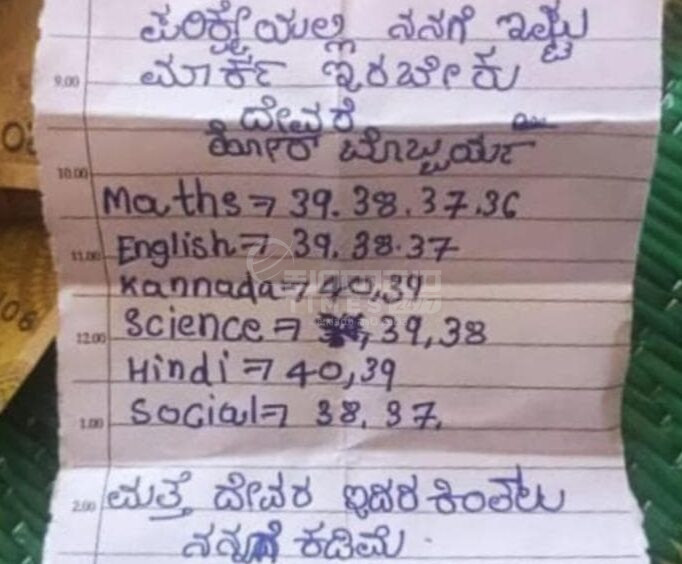 ಪರಿಕ್ಷೆಯಲ್ಲಿ ನನಗೆ ಇಷ್ಟು
9.00 ಮಾರ್ಕ ಇರಬೇಕು
ದೇವರೆ
ಹೋರ ಬೊಬ್ಬರ್ಯ
10.00
Maths ⇒ 39. 38. 37. 36
11.00 English ⇒ 39. 38. 37
Kannada ⇒ 40, 39
12.00 Science ⇒ , 39, 38
Hindi ⇒ 40, 39
1.00 Social ⇒ 38. 37.
2.00 ಮತ್ತೆ ದೇವರ ಇದರ ಕಿಂತಲು
ನನ್ನಗೆ ಕಡಿಮೆ.